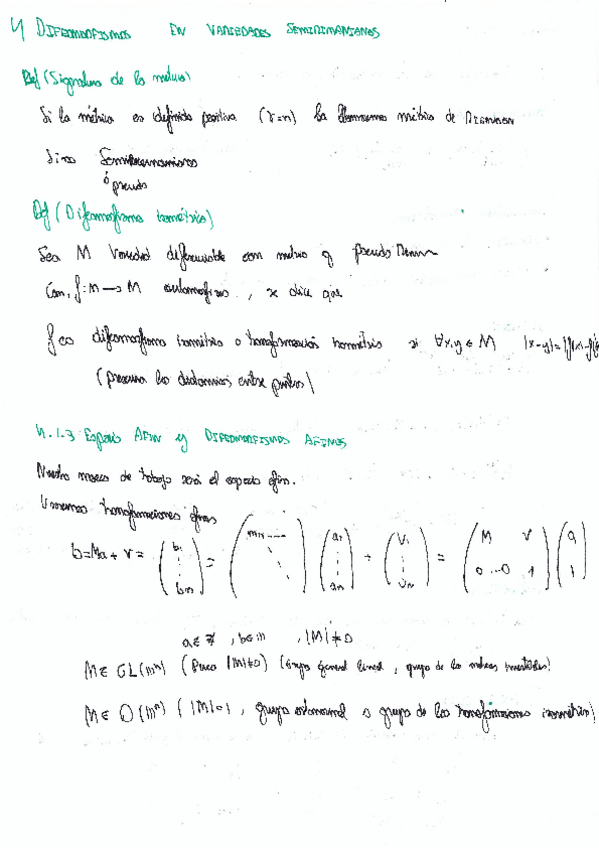 4 DIFEOMORFISMOS EN VARIEDADES SEMIRIMANIANAS
Def (Signatura de la métrica)
Si la métrica es definida positiva (r=n) la llamamos métrica de RIEMANN
Sino Semiriemanniana
ó pseudo
Def (Difeomorfismo isométrico)
Sea M Variedad diferenciable con métrica g pseudo Riemann
Con f: M → M automorfismo, se dice que
f es difeomorfismo isométrico o transformación isométrica si ∀x,y ∈ M |x-y|=|f(x)-f(y)
(preserva las distancias entre puntos)
4.1.3 Espacio AFIN y DIFEOMORFISMOS AFINES
Nuestro marco de trabajo será el espacio afín.
Usaremos transformaciones afines
b=Ma+v = (b₁ ⋮ bₙ) = (m₁₁ ---- ⋱) (a₁ ⋮ aₙ) + (v₁ ⋮ vₙ) = (M v 0...0 1) (a 1)
, |M|≠0
M ∈ GL(ℝⁿ) (pues |M|≠0) (Grupo general lineal, grupo de las matrices invertibles)
M ∈ O(ℝⁿ) (|M|=1, grupo ortonormal o grupo de las transformaciones isométricas)